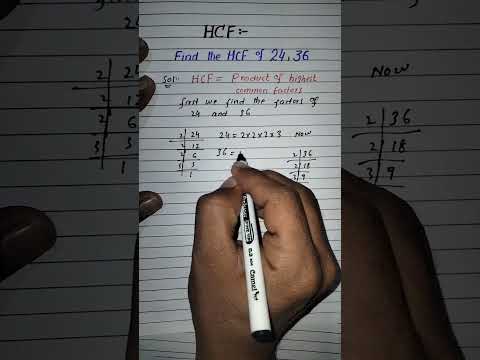 HCF:-
Find the HCF of 24,36
Sol:- HCF = Product of highest
common factors
first we find the factors of
24 and 36
2 24
2 12
2 6
3 3
1
24 = 2×2×2×3 Now
36 =
2 36
2 18
3 9
2 24
2 12
2 6
3 3
1
Now
2 36
2 18
3 9
Camel